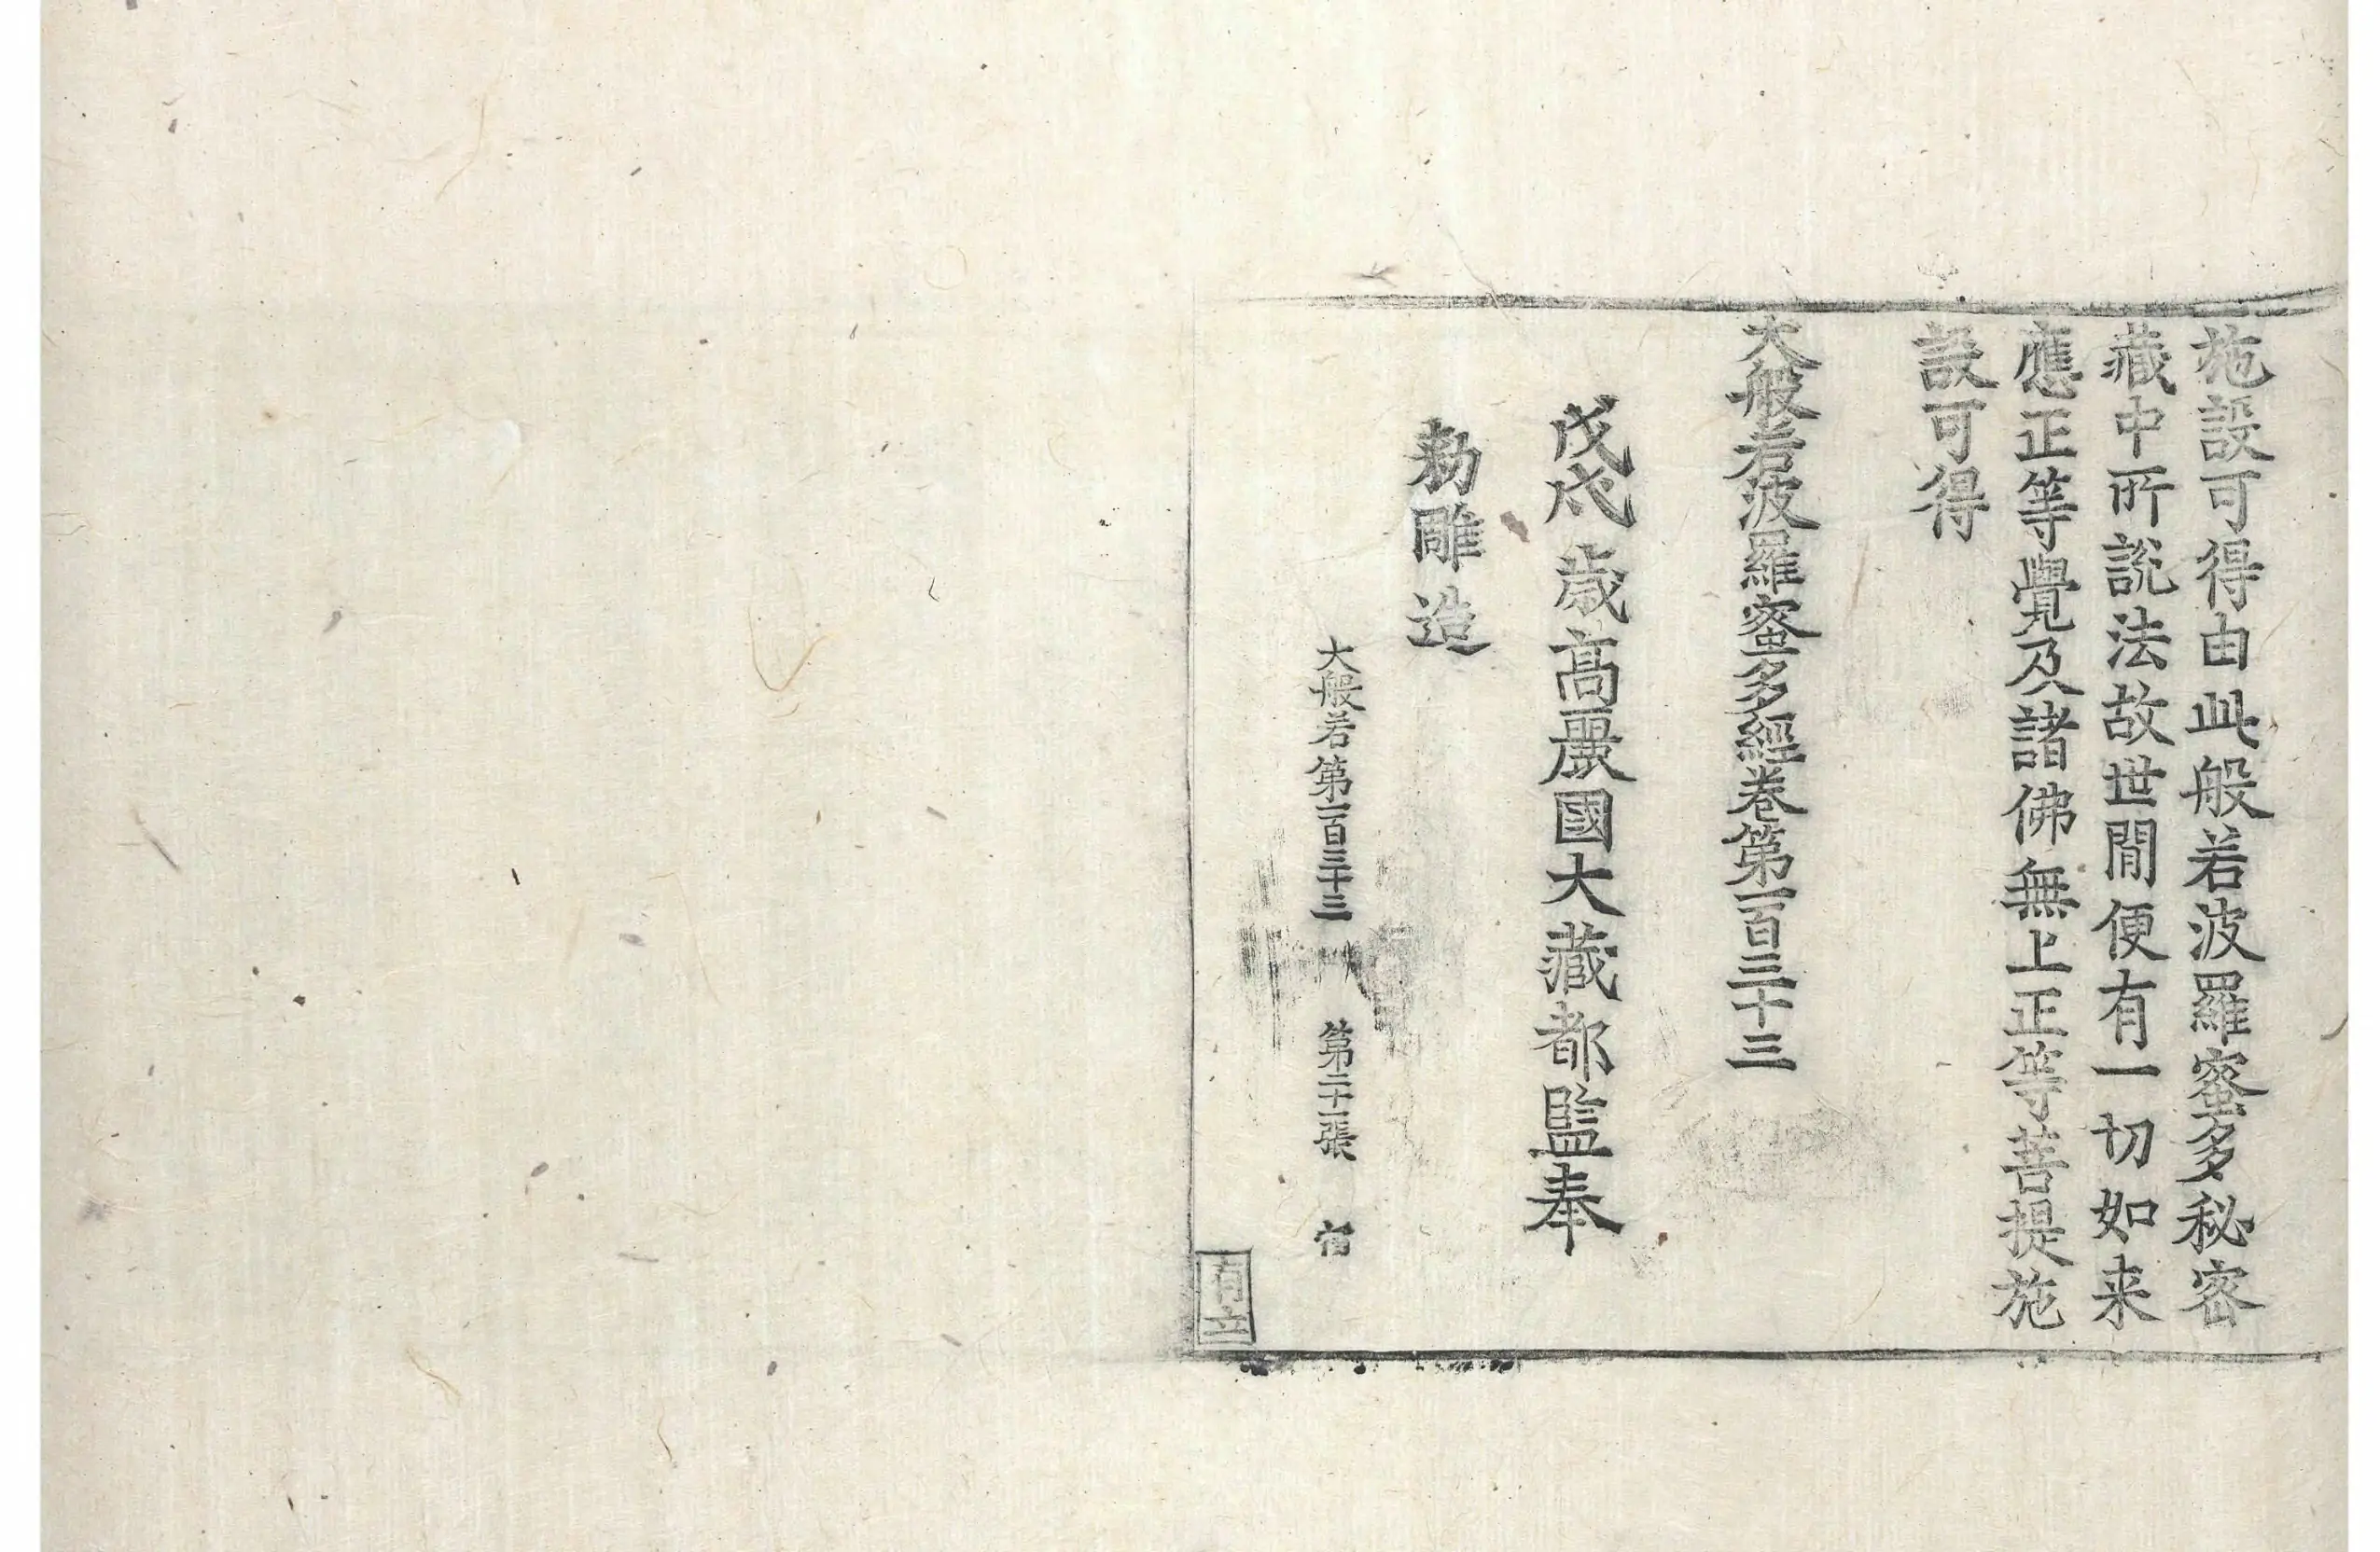 施設可得由此般若波羅蜜多秘密
藏中所說法故世閒便有一切如来
應正等覺及諸佛無上正等菩提施
設可得
大般若波羅蜜多經卷第一百三十三
戊戌歲高麗國大藏都監奉
勅雕造
大般若第一百三十三 第二十一張 宿
有立